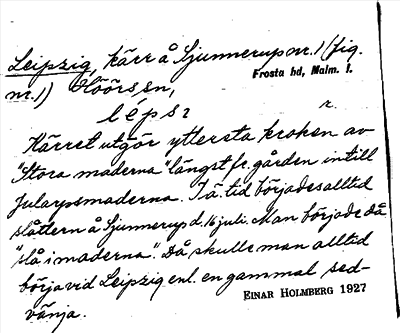 Leipzig, kärr å Sjunnerup nr. 1 (fig.
nr. 1) Höörs sn,
Frosta hd, Malm. l.
lépsɩ r.
Kärret utgör yttersta kroken av
"Stora maderna" längst fr. gården intill
Jularpsmaderna. I ä. tid börjades alltid
slåttern å Sjunnerup d. 16 juli. Man började då
"slå i maderna". Då skulle man alltid
börja vid Leipzig enl. en gammal sed-
vänja.
EINAR HOLMBERG 1927